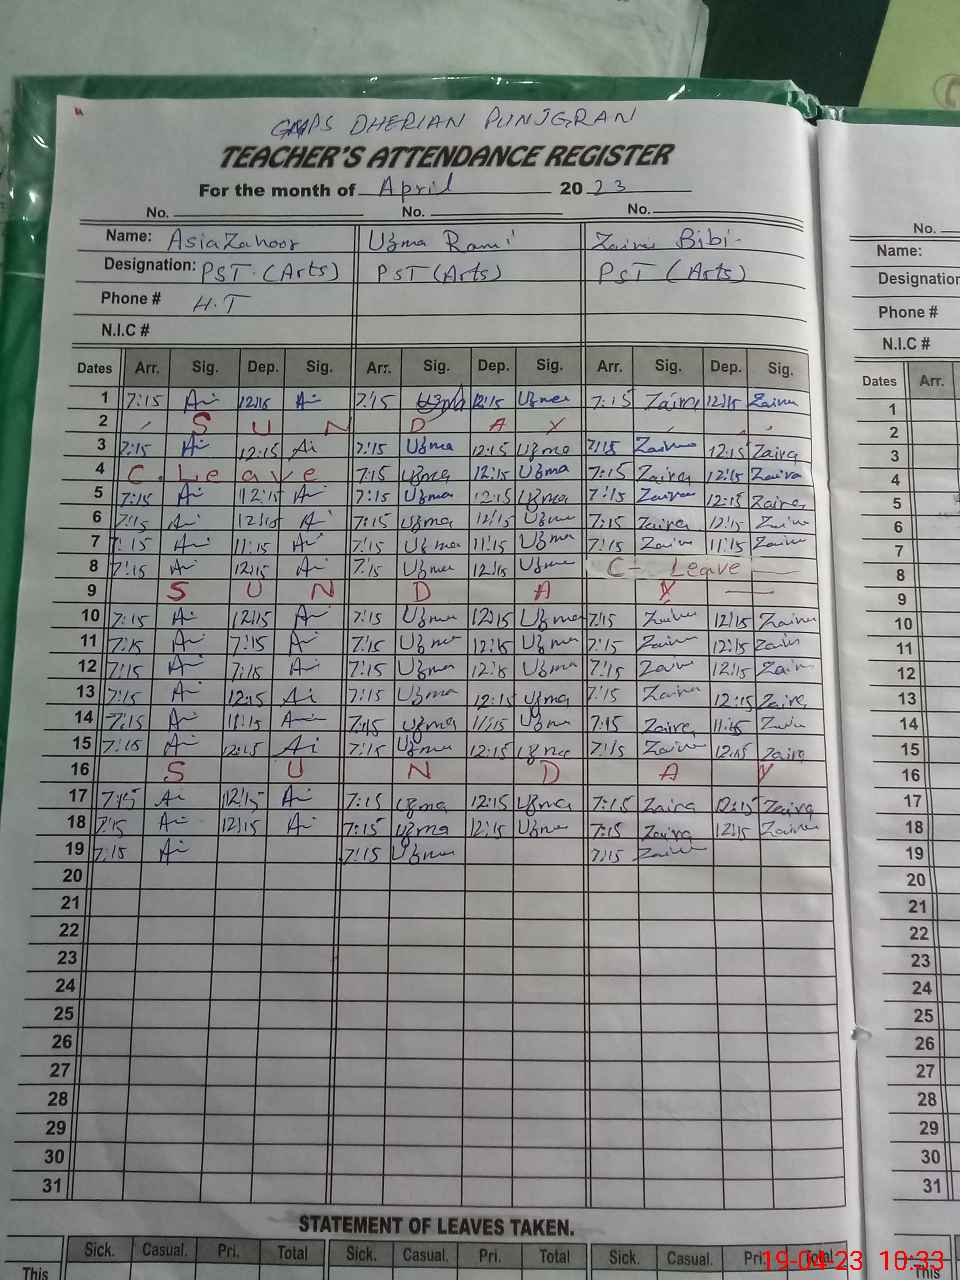 GMPS DHERIAN PUNJGRAN
TEACHER'S ATTENDANCE REGISTER
For the month of April 2023
No. No. No.
Name: Asia Zahoor Uzma Rani Zaira Bibi
Designation: PST (Arts) PST (Arts) PST (Arts)
Phone # H.T
N.I.C #
Dates Arr. Sig. Dep. Sig. Arr. Sig. Dep. Sig. Arr. Sig. Dep. Sig.
1 7:15 Ai 12:15 Ai 7:15 Uzma 12:15 Uzma 7:15 Zaira 12:15 Zaira
2 S U N D A Y
3 7:15 Ai 12:15 Ai 7:15 Uzma 12:15 Uzma 7:15 Zaira 12:15 Zaira
4 C. Leave 7:15 Uzma 12:15 Uzma 7:15 Zaira 12:15 Zaira
5 7:15 Ai 12:15 Ai 7:15 Uzma 12:15 Uzma 7:15 Zaira 12:15 Zaira
6 7:15 Ai 12:15 Ai 7:15 Uzma 12:15 Uzma 7:15 Zaira 12:15 Zaira
7 7:15 Ai 11:15 Ai 7:15 Uzma 11:15 Uzma 7:15 Zaira 11:15 Zaira
8 7:15 Ai 12:15 Ai 7:15 Uzma 12:15 Uzma C- Leave
9 S U N D A Y
10 7:15 Ai 12:15 Ai 7:15 Uzma 12:15 Uzma 7:15 Zaira 12:15 Zaira
11 7:15 Ai 7:15 Ai 7:15 Uzma 12:15 Uzma 7:15 Zaira 12:15 Zaira
12 7:15 Ai 7:15 Ai 7:15 Uzma 12:15 Uzma 7:15 Zaira 12:15 Zaira
13 7:15 Ai 12:15 Ai 7:15 Uzma 12:15 Uzma 7:15 Zaira 12:15 Zaira
14 7:15 Ai 11:15 Ai 7:15 Uzma 11:15 Uzma 7:15 Zaira 11:15 Zaira
15 7:15 Ai 12:15 Ai 7:15 Uzma 12:15 Uzma 7:15 Zaira 12:15 Zaira
16 S U N D A Y
17 7:15 Ai 12:15 Ai 7:15 Uzma 12:15 Uzma 7:15 Zaira 12:15 Zaira
18 7:15 Ai 12:15 Ai 7:15 Uzma 12:15 Uzma 7:15 Zaira 12:15 Zaira
19 7:15 Ai 7:15 Uzma 7:15 Zaira
20
21
22
23
24
25
26
27
28
29
30
31
STATEMENT OF LEAVES TAKEN.
Sick. Casual. Pri. Total Sick. Casual. Pri. Total Sick. Casual. Pri. Total
This
No.
Name:
Designation
Phone #
N.I.C #
Dates Arr.
1
2
3
4
5
6
7
8
9
10
11
12
13
14
15
16
17
18
19
20
21
22
23
24
25
26
27
28
29
30
31
This
19-04-23 10:33